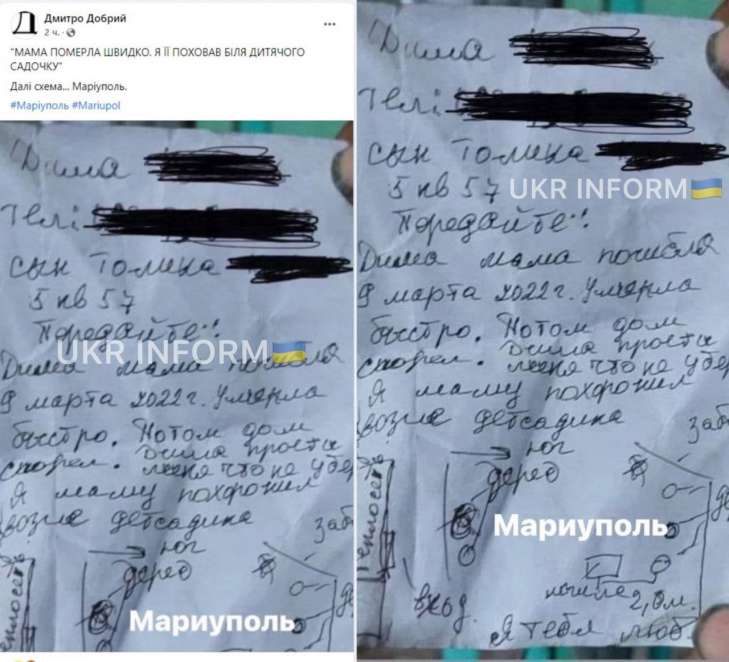 Дмитро Добрий
2 ч.
"МАМА ПОМЕРЛА ШВИДКО. Я ЇЇ ПОХОВАВ БІЛЯ ДИТЯЧОГО
САДОЧКУ"
Далі схема... Маріуполь.
#Маріуполь #Mariupol
Дима
Тел:
сын Толика
5 кв 57
UKR INFORM
Передайте!:
Дима мама погибла
9 марта 2022г. Умерла
быстро. Потом дом
сгорел. Дима прости
меня что не убер
Я маму похоронил
возле детсадика
юг
заб
дерев
Теплосеть
Мариуполь
Дима
Тел:
сын Толика
5 кв 57
UKR INFORM
Передайте!:
Дима мама погибла
9 марта 2022г. Умерла
быстро. Потом дом
сгорел. Дима прости
меня что не убер
Я маму похоронил
возле детсадика
юг
заб
дерев
Теплосеть
Мариуполь
вход
могила
2,0м.
Я тебя люб